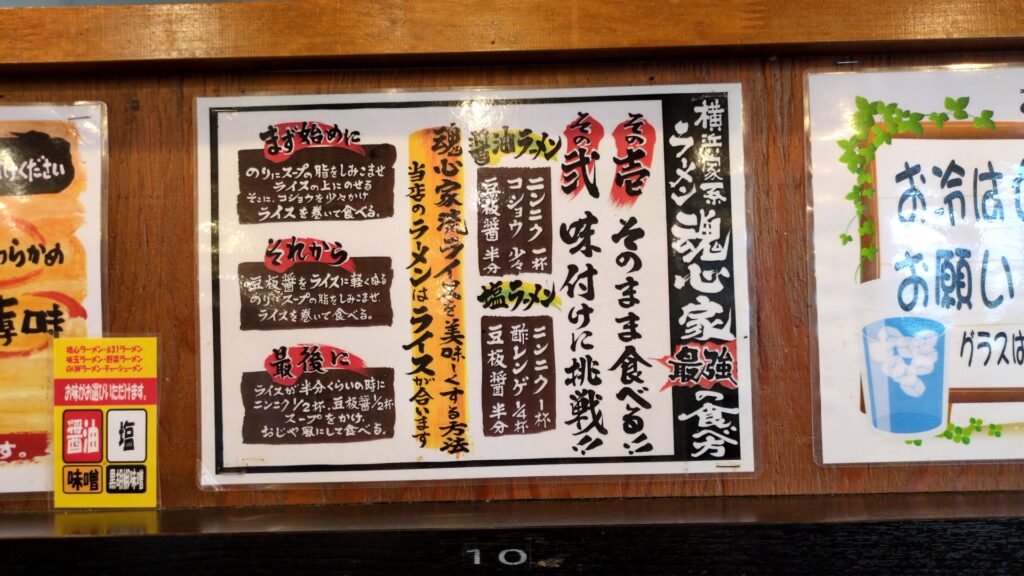 けください
わらかめ
味
す。
魂心ラーメン・631ラーメン
味玉ラーメン・野菜ラーメン
のり豚ラーメン・チャーシューメン
お味がお選びいただけます。
醤油
塩
味噌
黒胡椒味噌
横浜家系
ラーメン魂心家
最強の食べ方
その壱 そのまま食べる!!
その弐 味付けに挑戦!!
醤油ラーメン
ニンニク 一杯
コショウ 少々
豆板醤 半分
塩ラーメン
ニンニク 一杯
酢レンゲ 1/4杯
豆板醤 半分
魂心家流ライスを美味しくする方法
当店のラーメンはライスが合います
まず始めに
のりにスープの脂をしみこませ
ライスの上にのせる
そこに、コショウを少々かけ
ライスを巻いて食べる。
それから
豆板醤をライスに軽くぬる
のりにスープの脂をしみこませ
ライスを巻いて食べる。
最後に
ライスが半分くらいの時に
ニンニク1/2杯、豆板醤1/2杯
スープをかけ、
おじや風にして食べる。
お冷は
お願い
グラスは
10